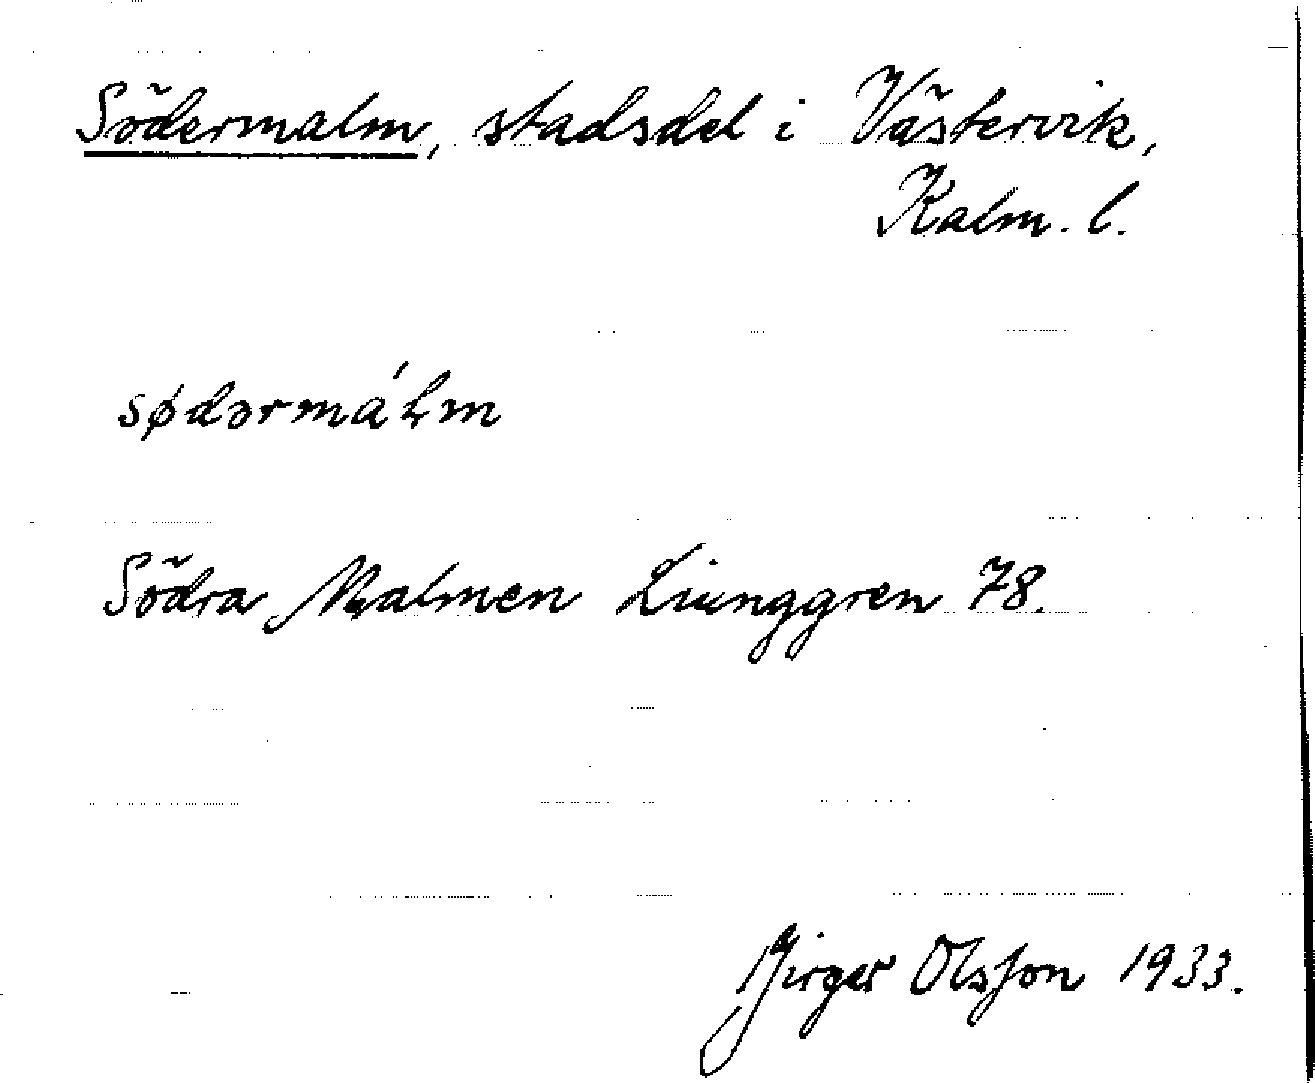 Södermalm, stadsdel i Västervik,
Kalm. l.
sødərmáḷm
Södra Malmen Liunggren 78.
Birger Olsson 1933.